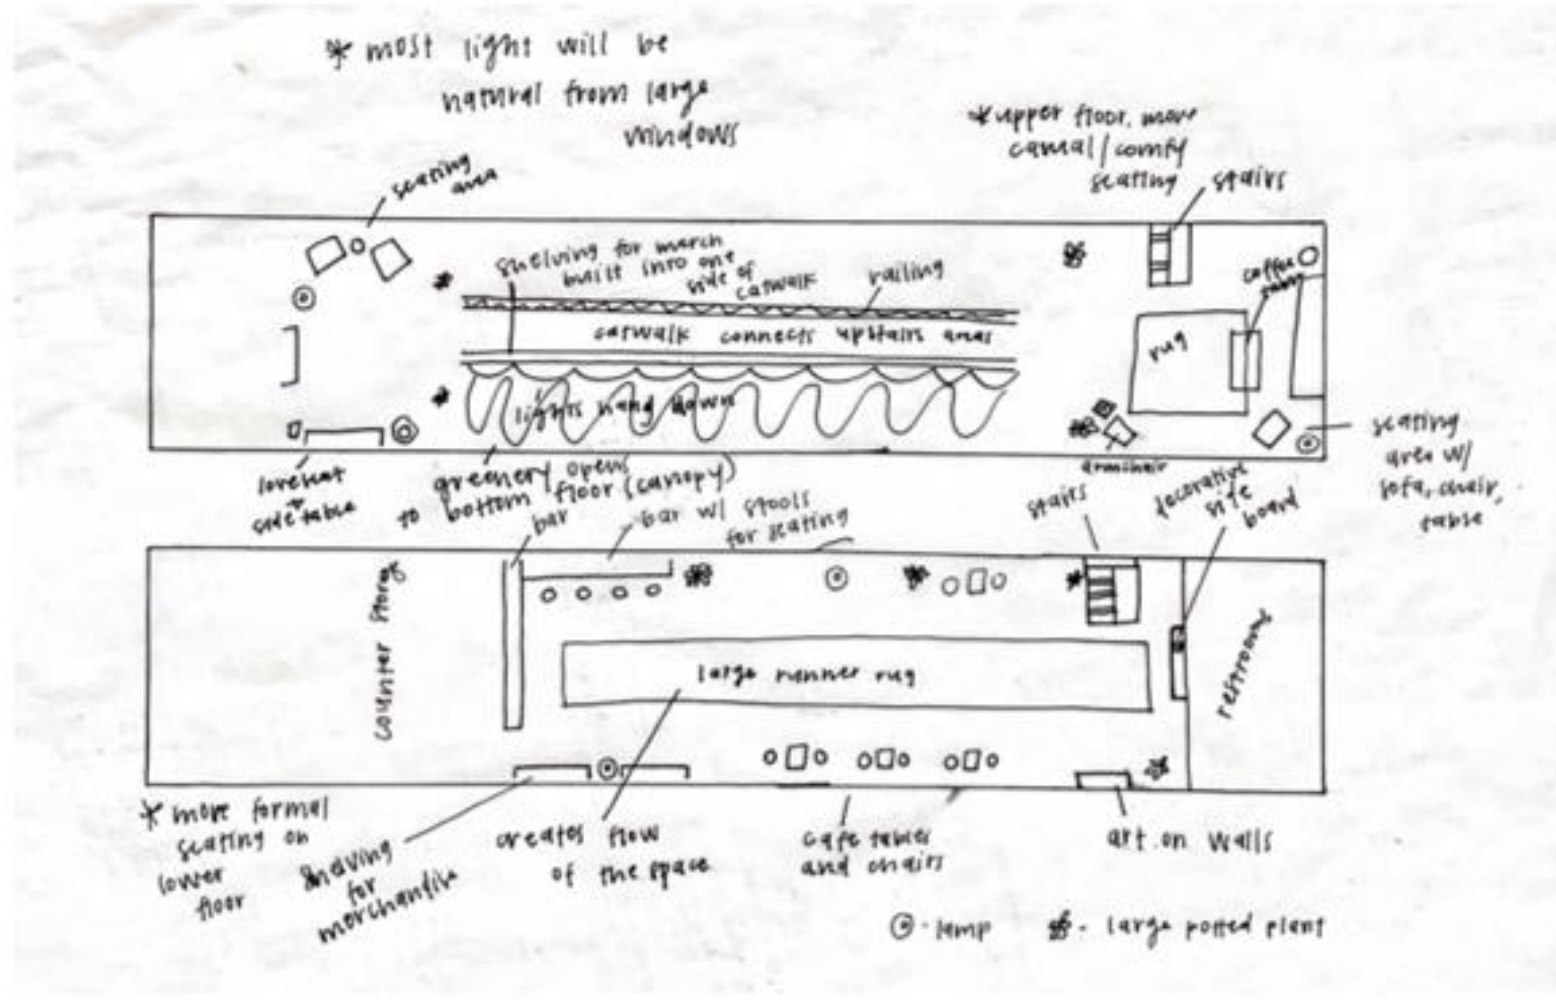 * most light will be
natural from large
windows
* upper floor, more
casual/comfy
seating
stairs
seating
area
shelving for merch
built into one
side of
catwalk
railing
catwalk connects upstairs areas
lights hang down
coffee
table
rug
armchair
seating
area w/
sofa, chair,
table
loveseat
side table
greenery opens
to bottom floor (canopy)
bar
bar w/ stools
for seating
stairs
decorative
side
board
counter storage
large runner rug
restrooms
* more formal
seating on
lower
floor
shelving
for
merchandise
creates flow
of the space
cafe tables
and chairs
art on walls
- lamp
- large potted plant